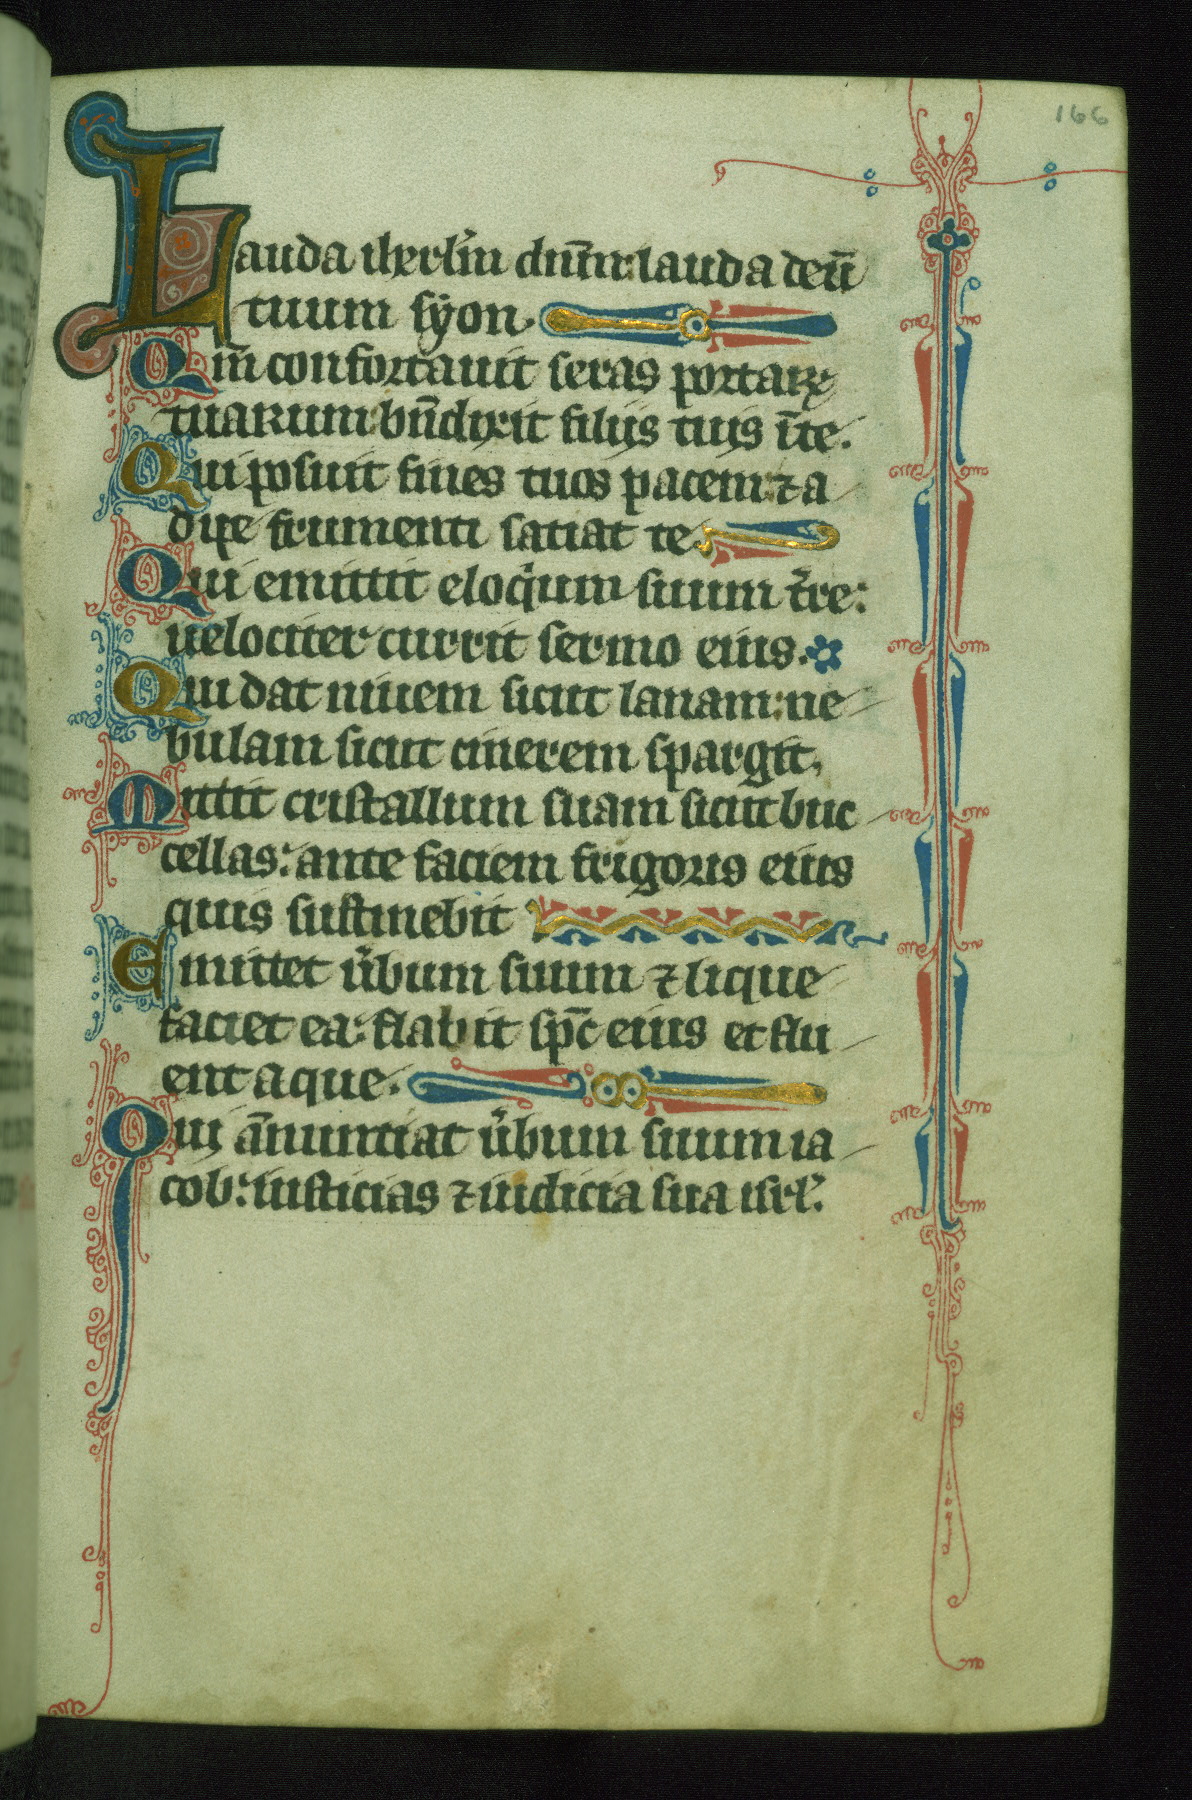 166
Lauda iherl'm dn̄m: lauda deū
tuum sẏon.
Qm̄ confortauit seras portaꝝ
tuarum: bn̄dixit filijs tuis ī te.
Qui posuit fines tuos pacem: ⁊ a
dipe frumenti satiat te
Qui emittit eloq̇um suum t̓re:
uelociter currit sermo eius.
Qui dat niuem sicut lanam: ne
bulam sicut cinerem spargit.
Mittit cristallum suam sicut buc
cellas: ante faciem frigoris eius
quis sustinebit
Emittet u̓bum suum ⁊ lique
faciet ea: flabit sp̄c eius et flu
ent aque.
Qui an̄nuntiat u̓bum suum ia
cob: iusticias ⁊ iudicia sua isrl'.